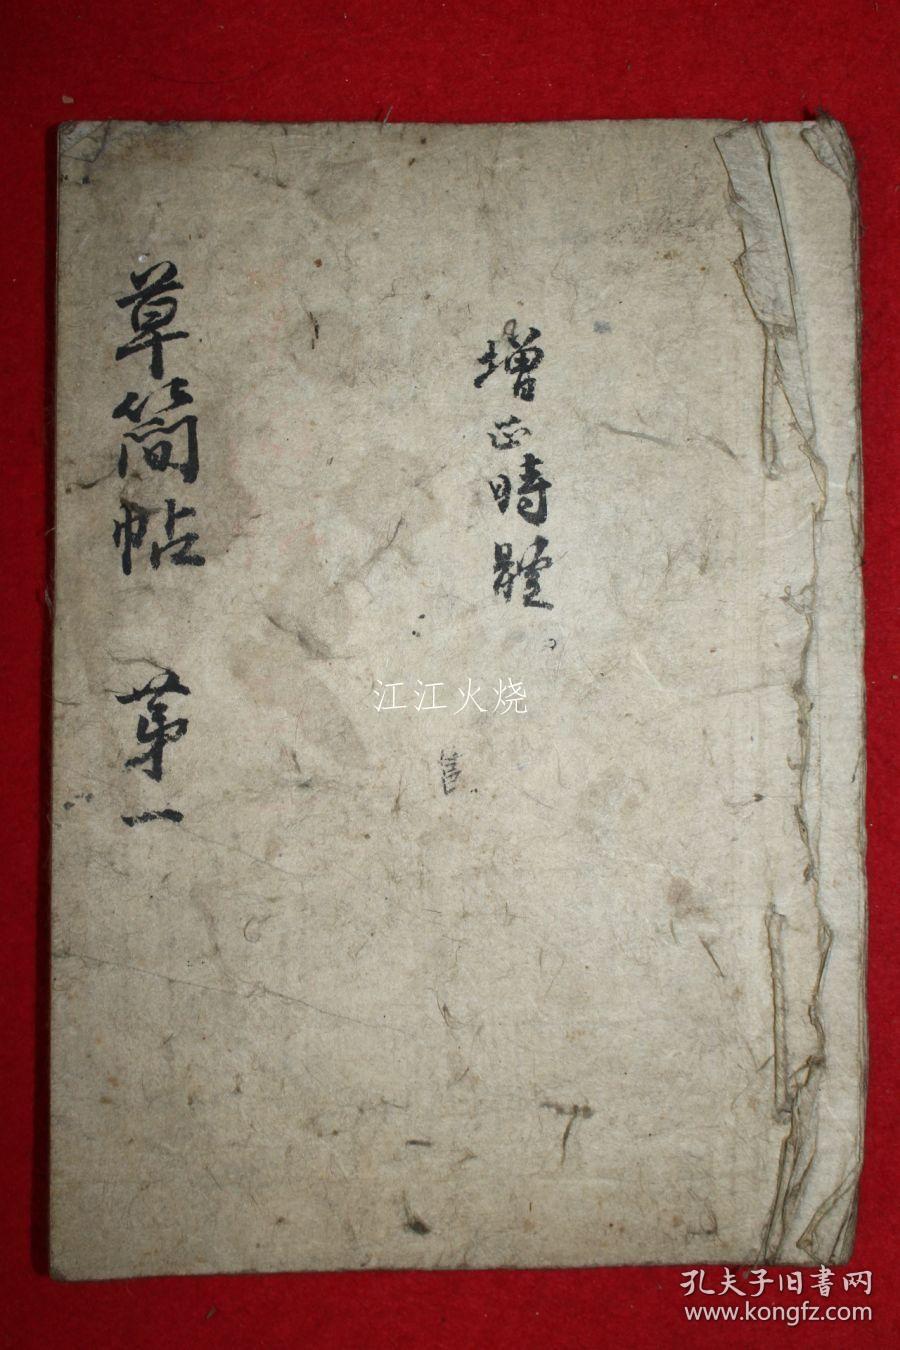 增正時體
草簡帖 苐一
江江火烧
孔夫子旧書网
www.kongfz.com